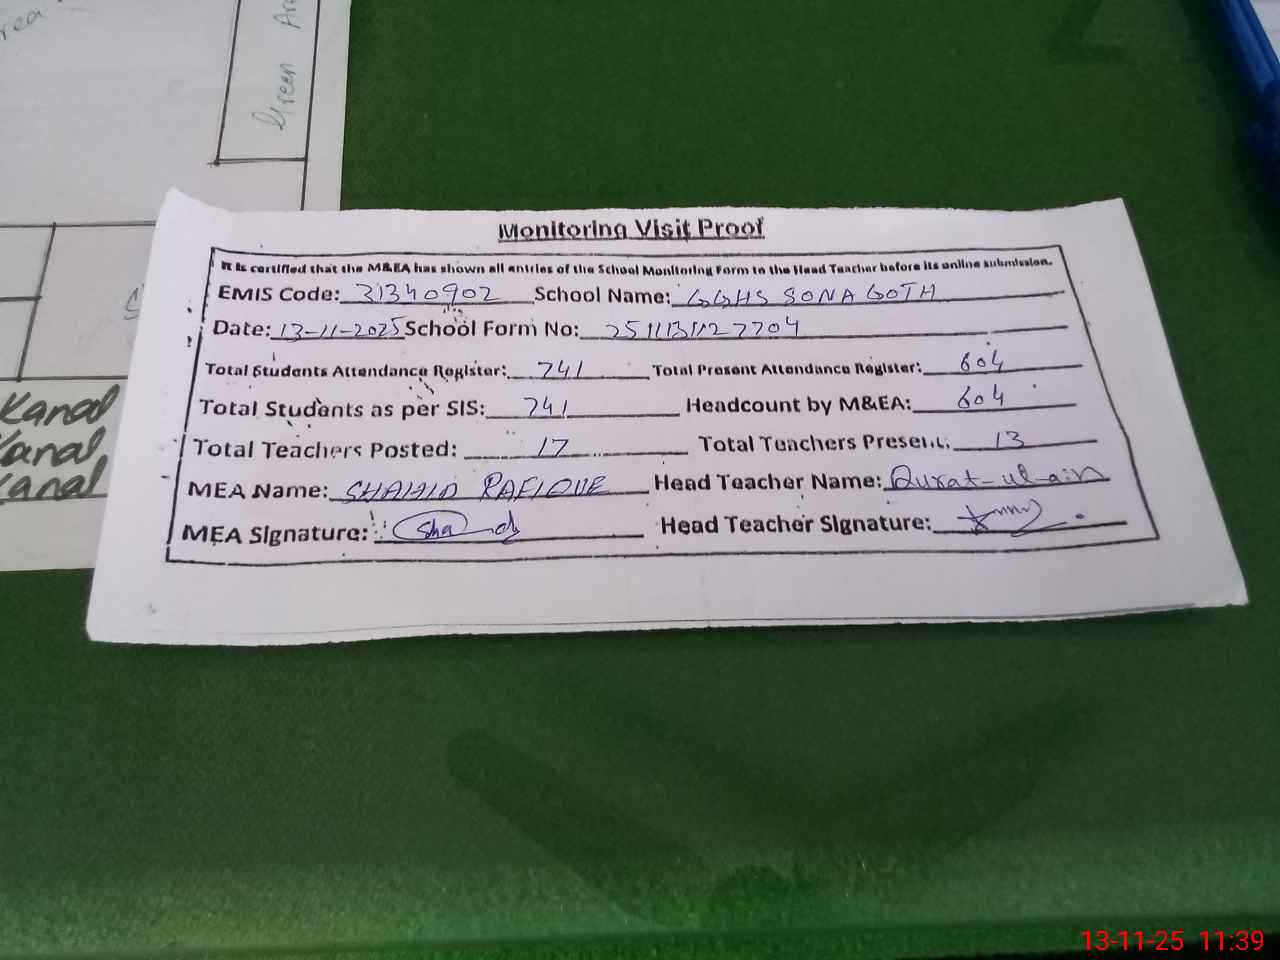 rea
Green Are
Monitoring Visit Proof
It is certified that the M&EA has shown all entries of the School Monitoring Form to the Head Teacher before its online submission.
EMIS Code: 31340902 School Name: GGHS SONA GOTH
Date: 13-11-2025 School Form No:
Total Students Attendance Register: 741 Total Present Attendance Register: 604
Total Students as per SIS: 741 Headcount by M&EA: 604
Total Teachers Posted: 17 Total Teachers Present: 13
MEA Name: SHAHID RAFIQUE Head Teacher Name: Qurat-ul-ain
MEA Signature: Head Teacher Signature:
Kanal
Kanal
Kanal
13-11-25 11:39